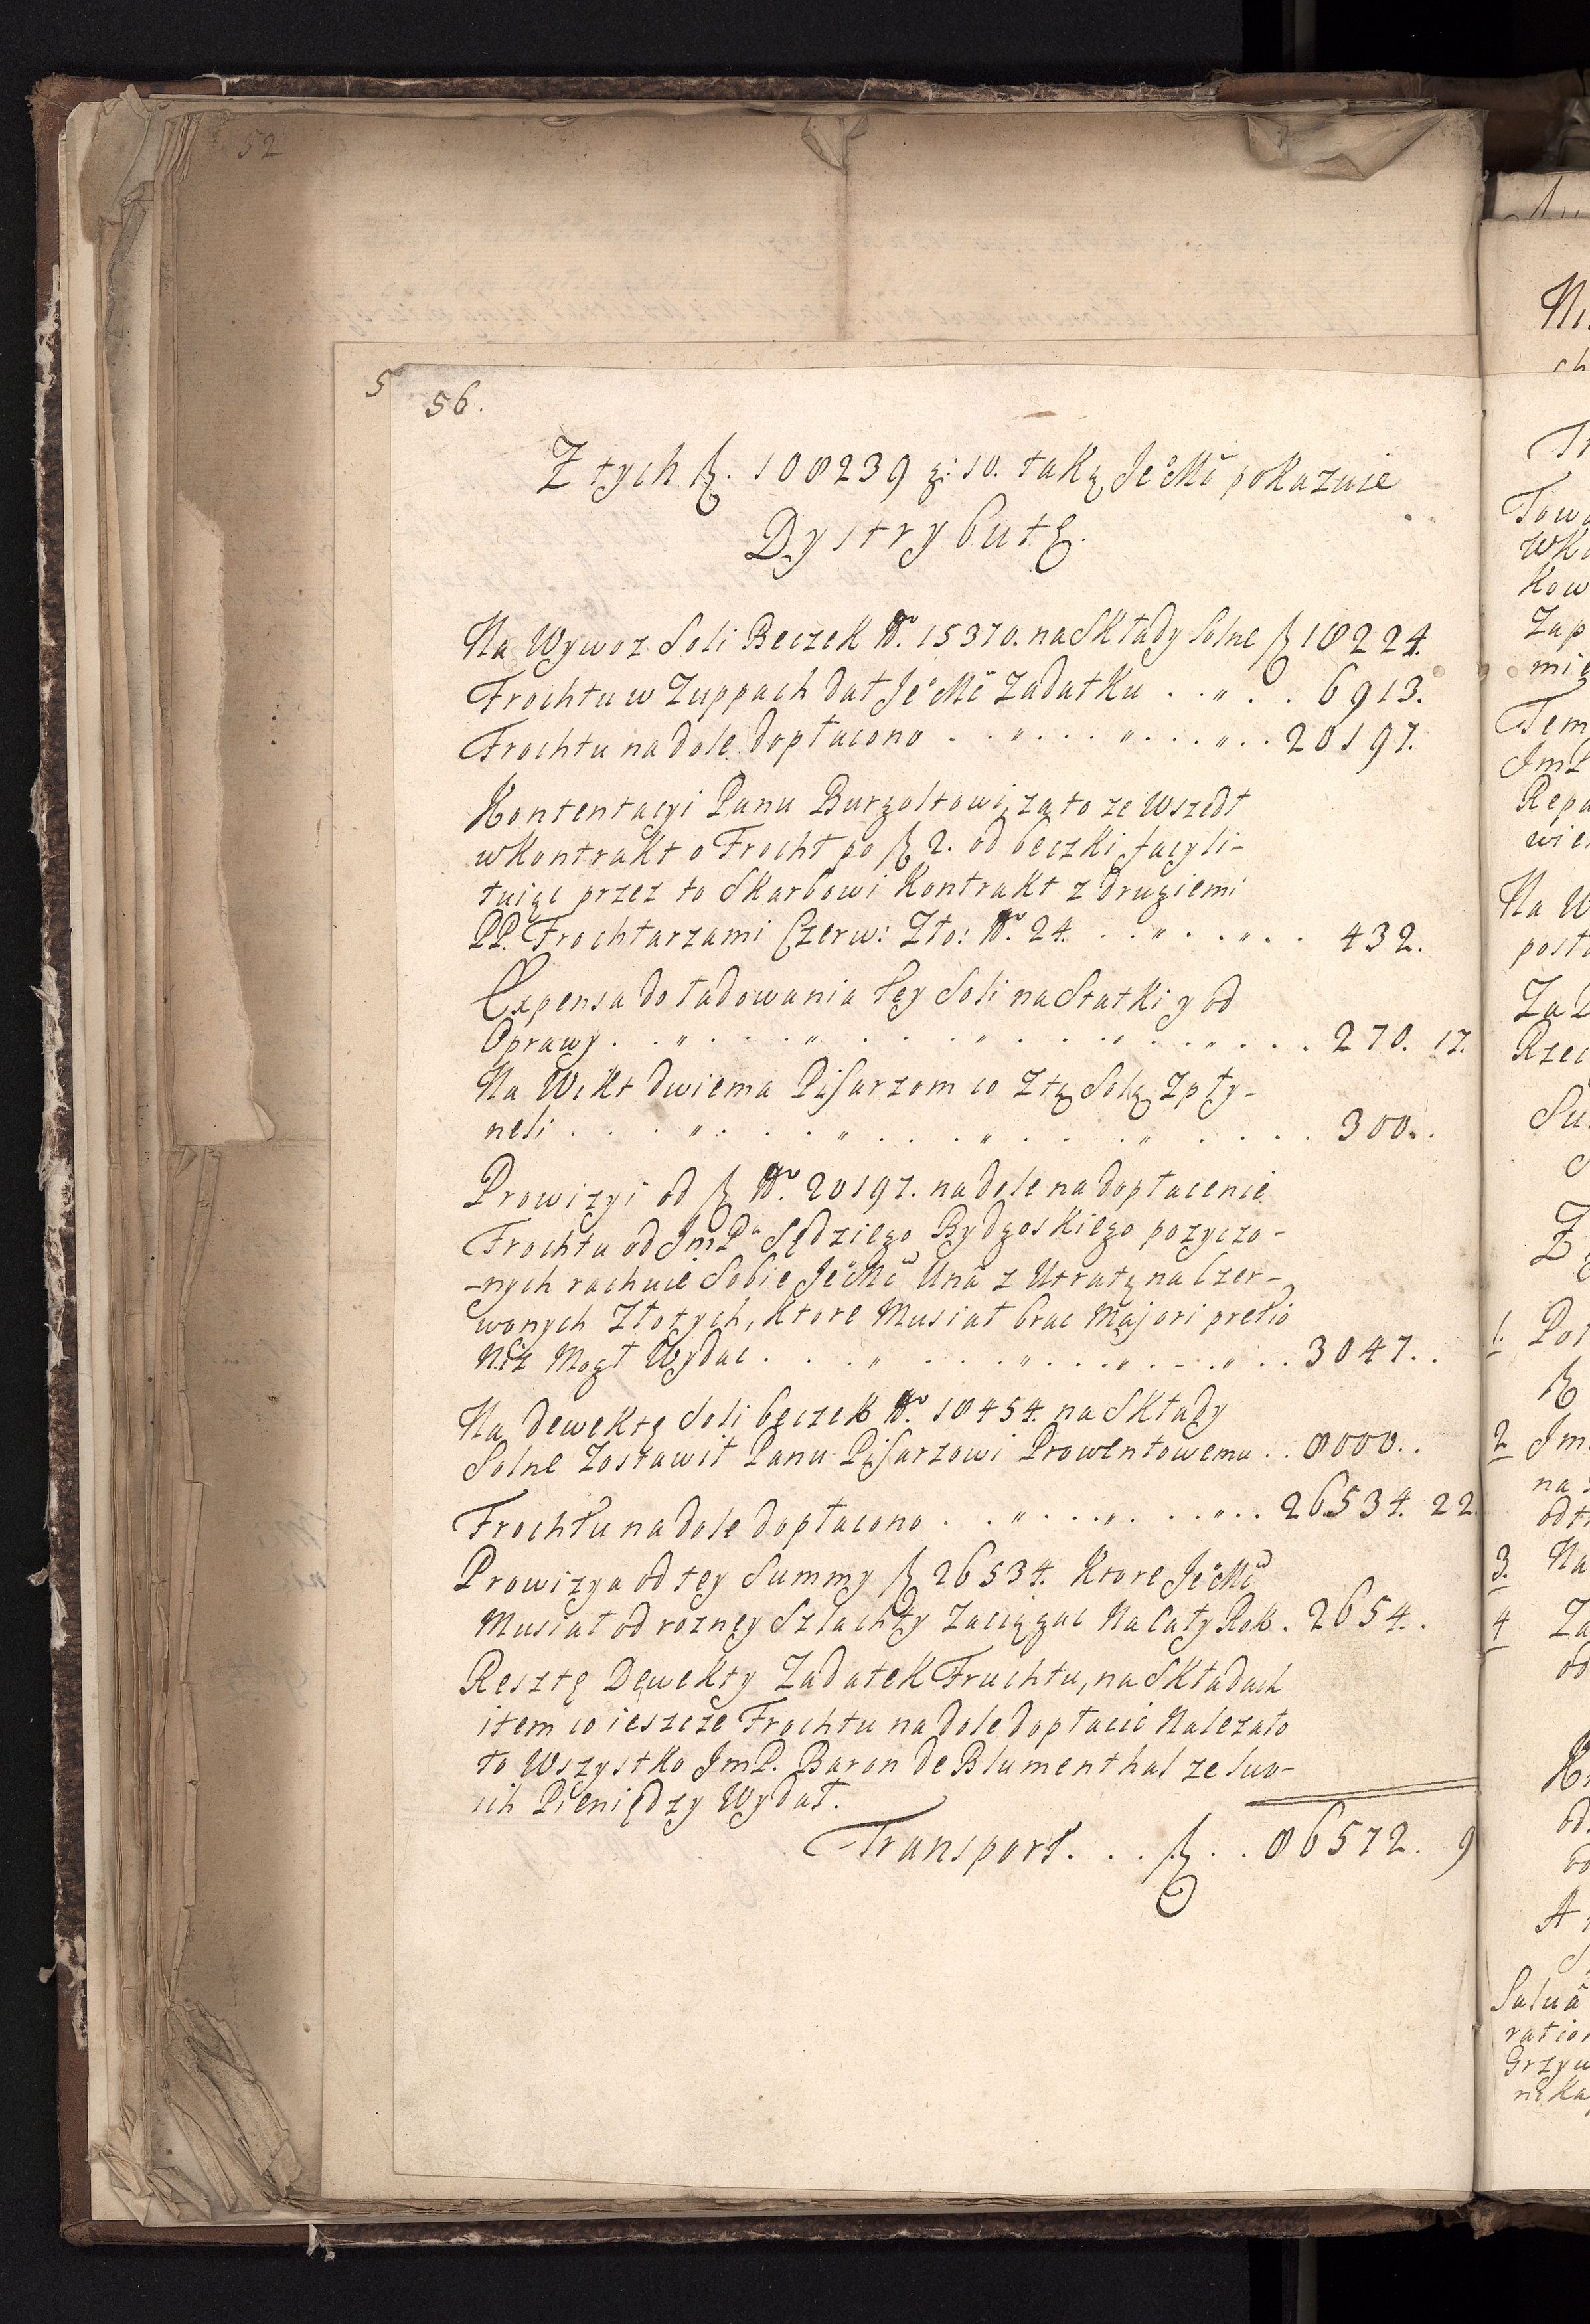 52
5
56.
Z tych fl. 108239 g: 10. taką JeoMć pokazuie
Dystrybutę.
Na Wywoz Soli Beczek No. 15370. na Składy Solne fl 18224.
Frochtu w Zuppach dał JeoMć Zadatku . . " . . 6913.
Frochtu na dole dopłacono . . " . . . " . . . " . . 20197.
Kontentacyi Panu Burgoltowi, za to ze Wszedł
w Kontrakt o Frocht po fl 2. od beczki facyli-
tuiąc przez to Skarbowi Kontrakt z drugiemi
PP. Frochtarzami Czerw: Zło: No. 24. . . " . . " . . 432.
Expensa do ładowania tey Soli na Statki y od
Oprawy . . " . . . " . . . " . . . " . . " . . . 270. 17.
Na Wikt dwiema Pisarzom co Z tą Solą Zpły-
neli . . . " . . . " . . . " . . . " . . . . 300. .
Prowizyi od fl No. 20197. na dole na dopłacenie
Frochtu od JmPa Sędziego Bydgoskiego pozyczo-
-nych rachuie Sobie JeoMć Una z Utratą na Czer-
wonych Złotych, Ktore Musiał brac Majori pretio
Niz Mogł Wydac . . . " . . . " . . . " . . . " . . 3047. .
Na dewektę Soli beczek No. 18454. na Składy
Solne Zostawił Panu Pisarzowi Prowentowemu . . 8000. .
Frochtu na dole dopłacono . . " . . . " . . . " . . 26534. 22.
Prowizya od tey Summy fl 26534. Ktore JeoMć
Musiał od roznęy Szlachty Zaciągac Na Cały Rok . 2654. .
Resztę Dewekty Zadatek Fruchtu, na Składach
item co ieszcze Frochtu na dole dopłacić Nalezało
to Wszystko JmP. Baron de Blumenthal ze swo-
ich Pieniędzy Wydał.
Transport. . . fl. . . 86572. 9